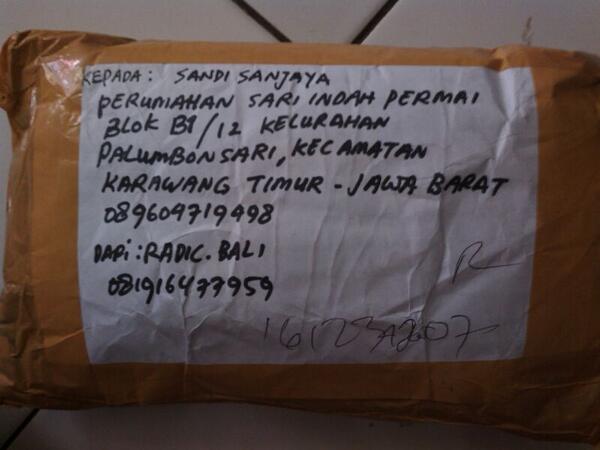 KEPADA: SANDI SANJAYA
PERUMAHAN SARI INDAH PERMAI
BLOK B9/12 KELURAHAN
PALUMBONSARI, KECAMATAN
KARAWANG TIMUR - JAWA BARAT
089604719498
DARI: RADIC. BALI
081916477959